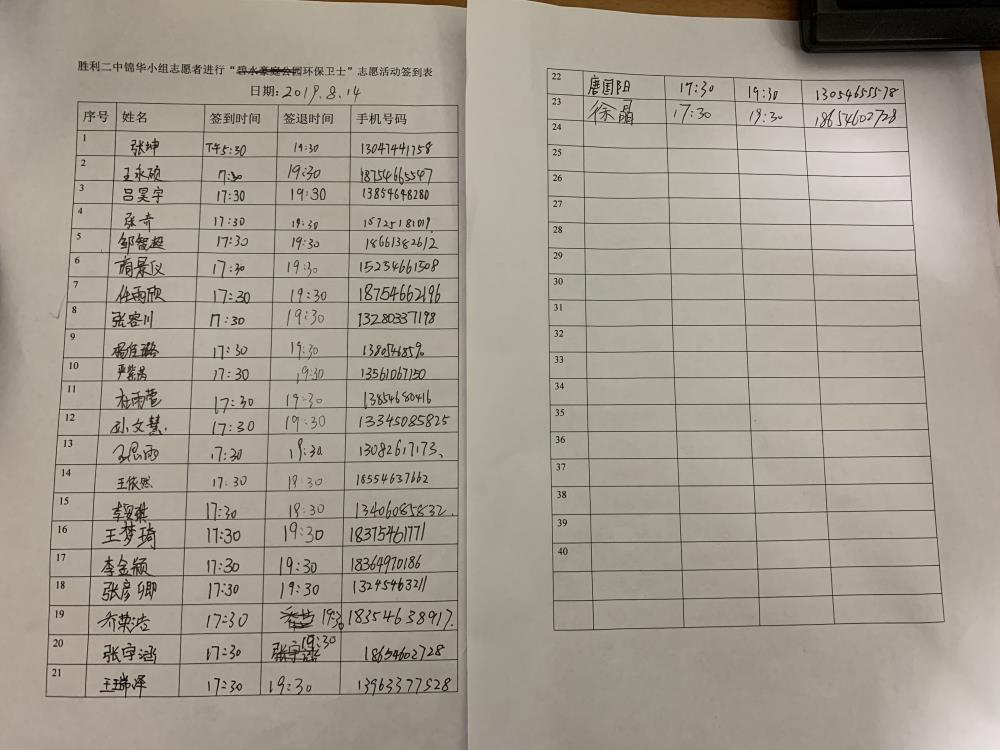 胜利二中锦华小组志愿者进行“碧水豪庭公园环保卫士”志愿活动签到表
日期:2019.8.14
序号 姓名 签到时间 签退时间 手机号码
1 张坤 下午5:30 19:30 13047441758
2 王永硕 17:30 19:30 18754665547
3 吕昊宇 17:30 19:30 13854648280
4 张奇 17:30 19:30 15725181019
5 邹智超 17:30 19:30 18661382612
6 商景仪 17:30 19:30 15254661508
7 任雨欣 17:30 19:30 18754662196
8 张容川 17:30 19:30 13280337198
9 杨佳璐 17:30 19:30
10 严紫菡 17:30 19:30 13561067150
11 杜雨萱 17:30 19:30 13854680416
12 孙文慧. 17:30 19:30 13345085825
13 17:30 19:30 13082617173、
14 王依然 17:30 19:30 18554637662
15 17:30 19:30 13406085832.
16 王梦琦 17:30 19:30 18375461771
17 李金颖 17:30 19:30 18364970186
18 张彦卿 17:30 19:30 13245463211
19 乔荣浩 17:30 19:30 18354638917.
20 张宇涵 17:30 张宇涵 19:30 18654602728
21 王瑞泽 17:30 19:30 13963377528
22 唐国阳 17:30 19:30 13054655578
23 徐晶 17:30 19:30 18654602728
24
25
26
27
28
29
30
31
32
33
34
35
36
37
38
39
40